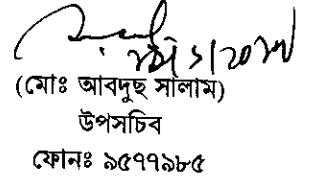 (মোঃ আবদুছ সালাম)
উপসচিব
ফোনঃ ৯৫৭৭৯৮৫